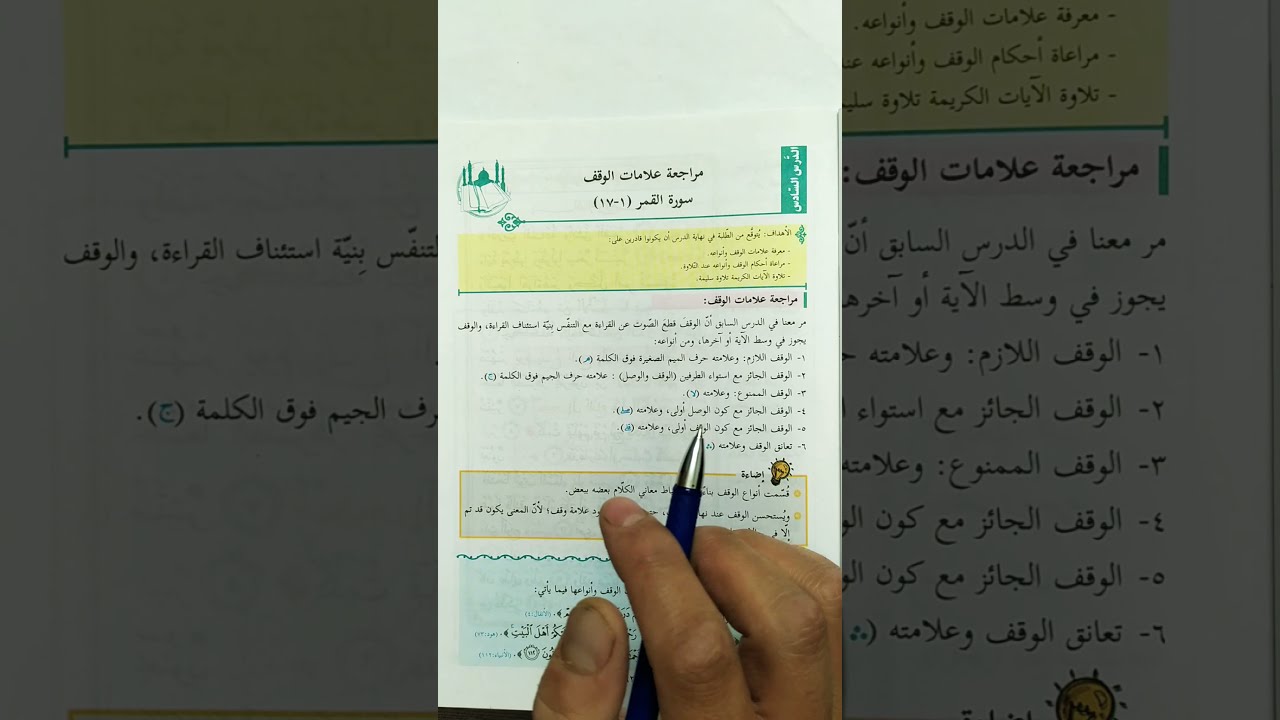 الدرس السادس
مراجعة علامات الوقف
سورة القمر (١-١٧)
الأهداف: يُتوقَّع من الطّلبة في نهاية الدرس أن يكونوا قادرين على:
- معرفة علامات الوقف وأنواعه.
- مراعاة أحكام الوقف وأنواعه عند التلاوة.
- تلاوة الآيات الكريمة تلاوة سليمة.
مراجعة علامات الوقف:
مر معنا في الدرس السابق أنّ الوقفَ قطعُ الصّوت عن القراءة مع التنفّس بِنيّة استئناف القراءة، والوقف
يجوز في وسط الآية أو آخرها، ومن أنواعه:
١- الوقف اللازم: وعلامته حرف الميم الصغيرة فوق الكلمة (مـ).
٢- الوقف الجائز مع استواء الطرفين (الوقف والوصل) : علامته حرف الجيم فوق الكلمة (ج).
٣- الوقف الممنوع: وعلامته (لا).
٤- الوقف الجائز مع كون الوصل أولى، وعلامته (صلے).
٥- الوقف الجائز مع كون الوقف أولى، وعلامته (قلے).
٦- تعانق الوقف وعلامته (ۛ
إضاءة
قُسّمت أنواع الوقف معاني الكلّام بعضه ببعض.
ويُستحسن الوقف عند علامة وقف؛ لأنّ المعنى يكون قد تم
إلّا في
الوقف وأنواعها فيما يأتي:
(الأنفال:٤)
أَهْلَ ٱلْبَيْتِۚ ﴾. (هود:٧٣)
(الأنبياء:١١٢)
- معرفة علامات الوقف وأنواعه.
- مراعاة أحكام الوقف وأنواعه عند
- تلاوة الآيات الكريمة تلاوة
مراجعة علامات الوقف:
مر معنا في الدرس السابق أنّ
التنفّس بِنيّة استئناف القراءة، والوقف
يجوز في وسط الآية أو آخرها
١- الوقف اللازم: وعلامته
٢- الوقف الجائز مع استواء
رف الجيم فوق الكلمة (ج).
٣- الوقف الممنوع: وعلامته
٤- الوقف الجائز مع كون
٥- الوقف الجائز مع كون
٦- تعانق الوقف وعلامته (ۛ
إضاءة